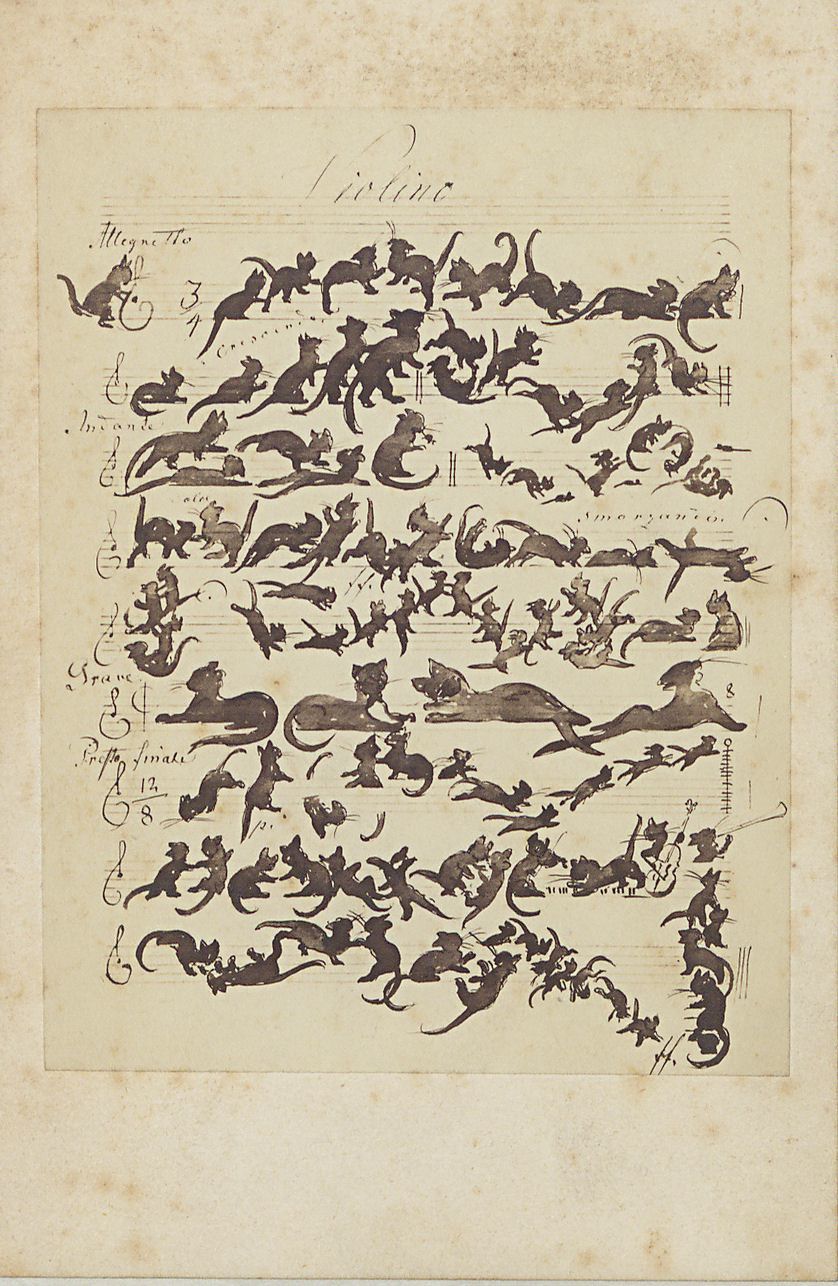 Violino
Allegretto
3
4
Crescendo
Andante
Smorzando.
ff.
Grave
8
Presto finale
12
8
p.
ff.